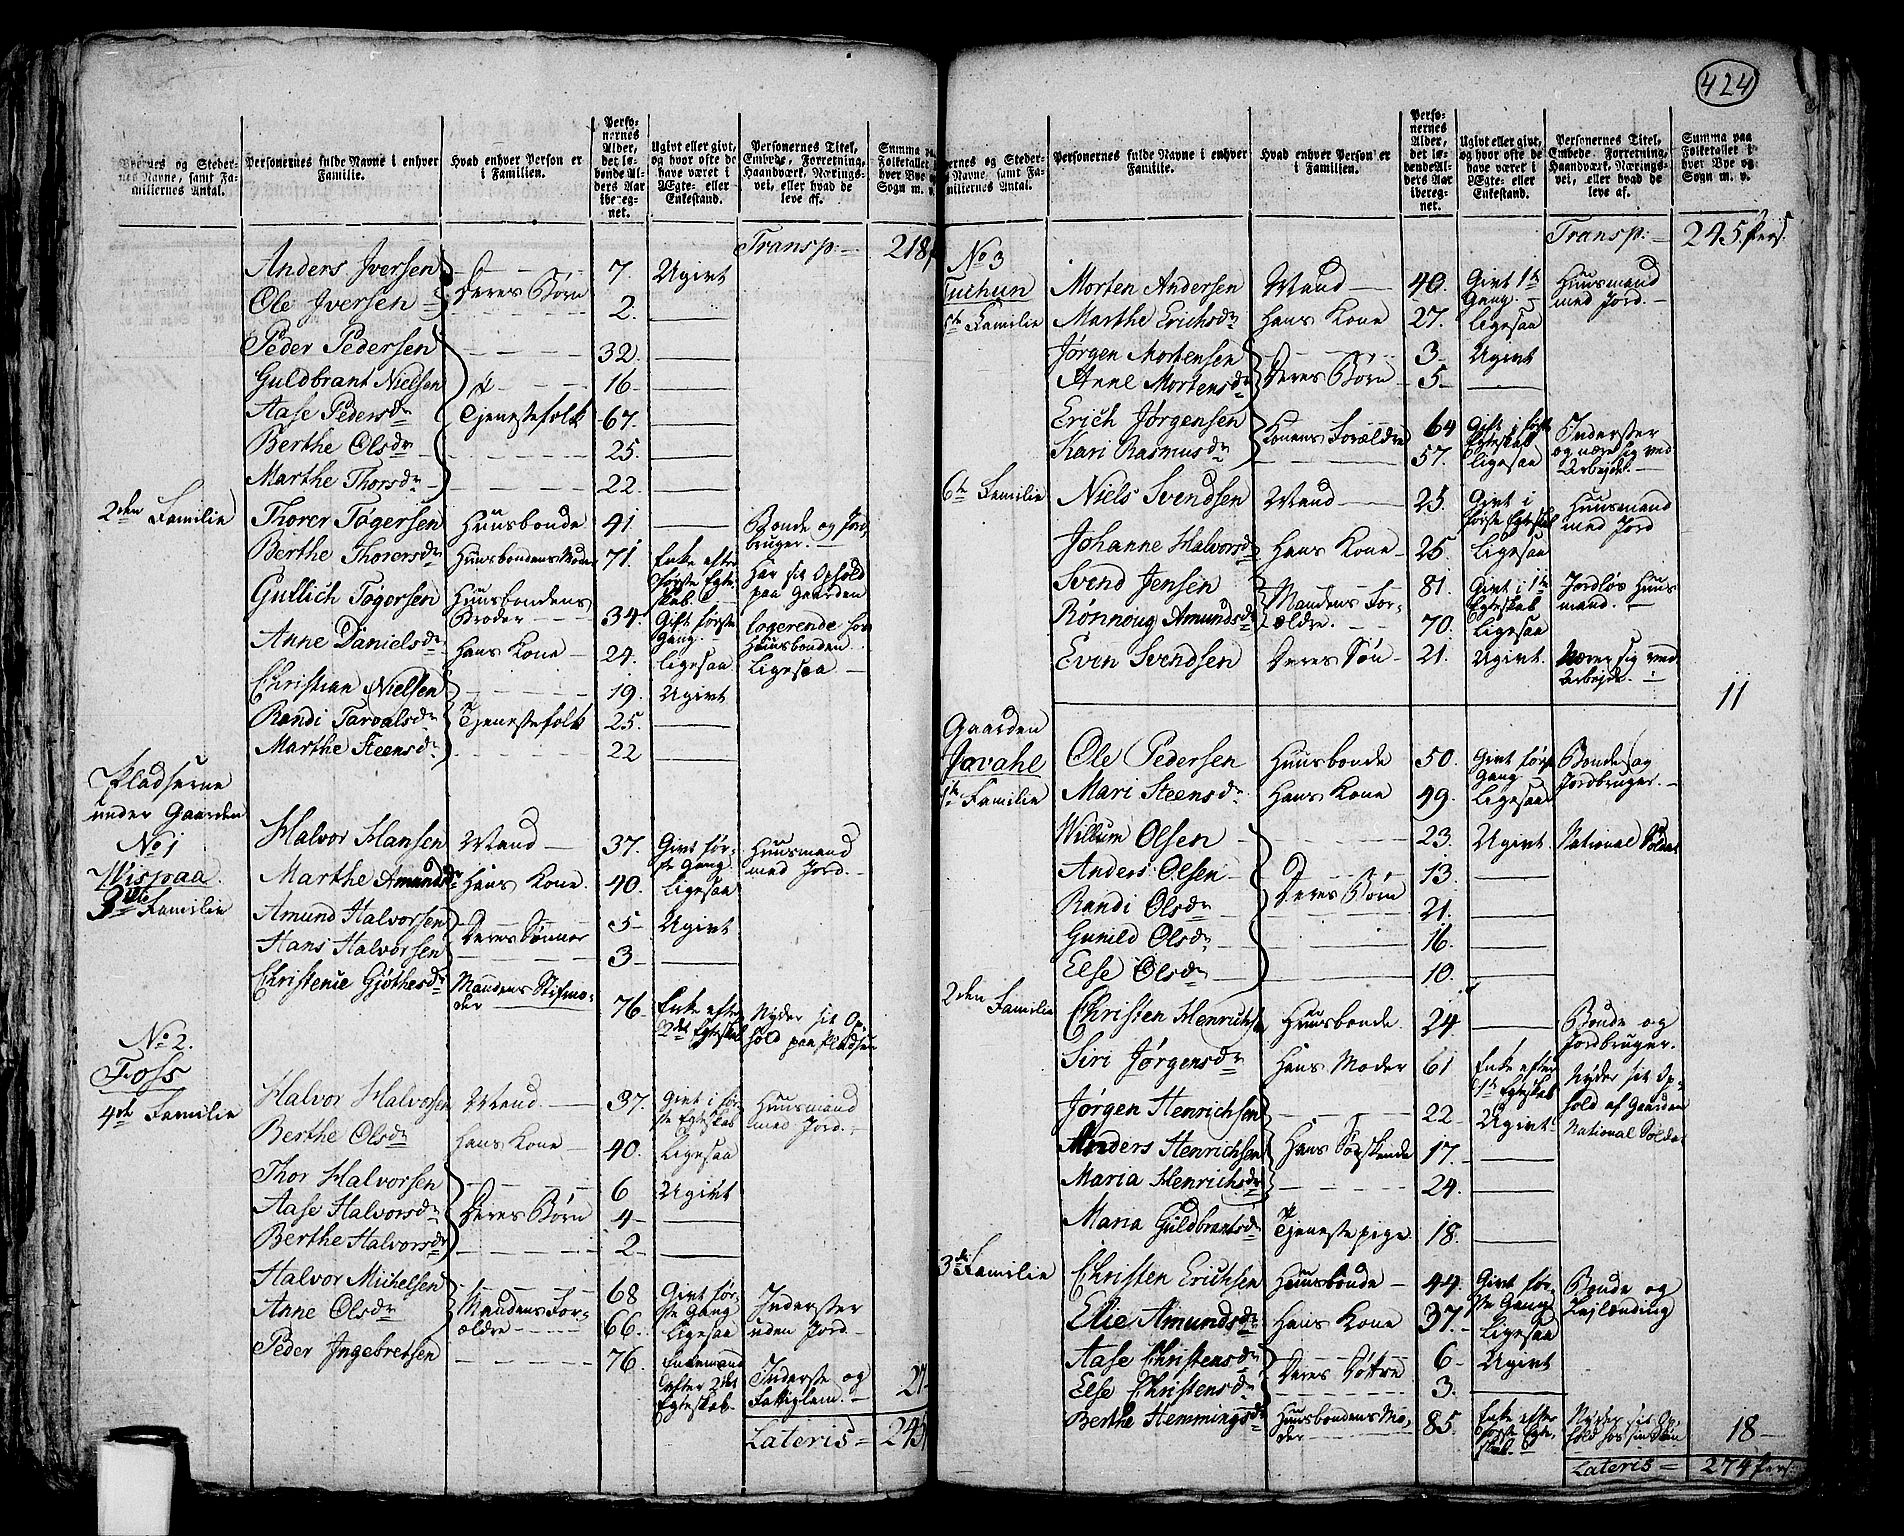 424
Byernes og Stedernes Navne, samt Familiernes Antal.
Personernes fulde Navne i enhver Familie.
Hvad enhver Person er i Familien.
Personernes Alder, det løbende Alders Aar iberegnet.
Ugivt eller givt, og hvor ofte de have været i Ægte- eller Enkestand.
Personernes Titel, Embede, Forretning, Haandværk, Næringsvei, eller hvad de leve af.
Summa paa Folketallet i hver Bye og Sogn m. v.
Transp: 218
Anders Iversen Deres Børn 7. Ugivt
Ole Iversen 2.
Peder Pedersen Tjenestefolk 32.
Guldbrant Nielsen 16
Aase Pedersdr 67.
Berthe Olsdr 25
Marthe Thorsdr 22
2den Familie Thorer Togersen Huusbonde 41. Bonde og Jordbruger.
Berthe Thorersdr Huusbondens Moder 71. Enke efter første Egteskab. Har sit Ophold paa Gaarden
Gullich Togersen Huusbondens Broder 34. Gift første Gang. logerende hos Huusbonden
Anne Danielsdr Hans Kone 24. Ligesaa Ligesaa
Christian Nielsen Tjenestefolk 19. Ugivt
Randi Tarvalsdr 25
Marthe Steensdr 22
Pladserne under Gaarden
No 1 Wispaa
3die Familie Halvor Hansen Mand 37. Givt første Gang Huusmand med Jord.
Marthe Amundsdr Hans Kone. 40. Ligesaa
Amund Halvorsen Deres Sønner 5 Ugivt
Hans Halvorsen 3
Christenie Gjøthesdr Mandens Stifmoder 76 Enke efter 2det Egteskab Nyder sit Ophold paa Pladsen
No 2. Foss
4de Familie Halvor Halvorsen Mand 37. Givt i første Egteskab Huusmand med Jord.
Berthe Olsdr Hans Kone 40. Ligesaa
Thor Halvorsen Deres Børn 6 Ugivt
Aase Halvorsdr 4
Berthe Halvorsdr 2
Halvor Michelsen Mandens Forældre 68 Givt første Gang Inderster uden Jord
Anne Olsdr 66. Ligesaa
Peder Ingebretsen 76. Enkemand efter 2det Egteskab. Inderste og Fattiglem. 27
Lateris = 245
Byernes og Stedernes Navne, samt Familiernes Antal.
Personernes fulde Navne i enhver Familie.
Hvad enhver Person er i Familien.
Personernes Alder, det løbende Alders Aar iberegnet.
Ugivt eller givt, og hvor ofte de have været i Ægte- eller Enkestand.
Personernes Titel, Embede, Forretning, Haandværk, Næringsvei, eller hvad de leve af.
Summa paa Folketallet i hver Bye og Sogn m. v.
Transp: 245 pers:
No 3
5te Familie Morten Andersen Mand 40. Givt 1te Gang. Huusmand med Jord.
Marthe Erichsdr Hans Kone 27. Ligesaa
Jørgen Mortensen Deres Børn 3 Ugivt
Anne Mortensdr 5
Erich Jørgensen Konens Forældre 64 Gift i første Egteskab Inderster og nære sig ved Arbejde.
Kari Rasmusdr 57. Ligesaa
6te Familie Niels Svendsen Mand 25. Givt i første Egteskab Huusmand med Jord
Johanne Halvorsdr Hans Kone 25. Ligesaa
Svend Jensen Mandens Forældre. 81. Givt i 1te Egteskab Jordløs Huusmand.
Rønnoug Amundsdr 70. Ligesaa
Even Svendsen Deres Søn 21. Ugivt. Nærer sig ved Arbejde. 11
Gaarden Jovahl
1te Familie Ole Pedersen Huusbonde 50. Givt første Gang Bonde og Jordbruger.
Mari Steensdr Hans Kone 49. Ligesaa
Willum Olsen Deres Børn 23. Ugivt. National Soldat
Anders Olsen 13.
Randi Olsdr 21.
Gunild Olsdr 16.
Else Olsdr 10.
2den Familie Christen Henrichs. Huusbonde. 24 Bonde og Jordbruger.
Siri Jørgensdr Hans Moder 61 Enke efter 1te Egteskab Nyder sit Ophold af Gaarden
Jørgen Henrichsen Hans Søskende 22 Ugivt National Soldat
Anders Henrichsen 17.
Maria Henrichsdr 24.
Maria Guldbrantsdr Tjenestepige 18.
3die Familie Christen Erichsen Huusbonde 44. Givt første Gang Bonde og Lejlending
Elie Amundsdr Hans Kone 37. Ligesaa
Aase Christensdr Deres Døtre 6 Ugivt
Else Christensdr 3.
Berthe Hemmingsdr Huusbondens Moder 85. Enke efter første Egteskab. Nyder sit Ophold hos sin Søn 18
Lateris = 274 pers: